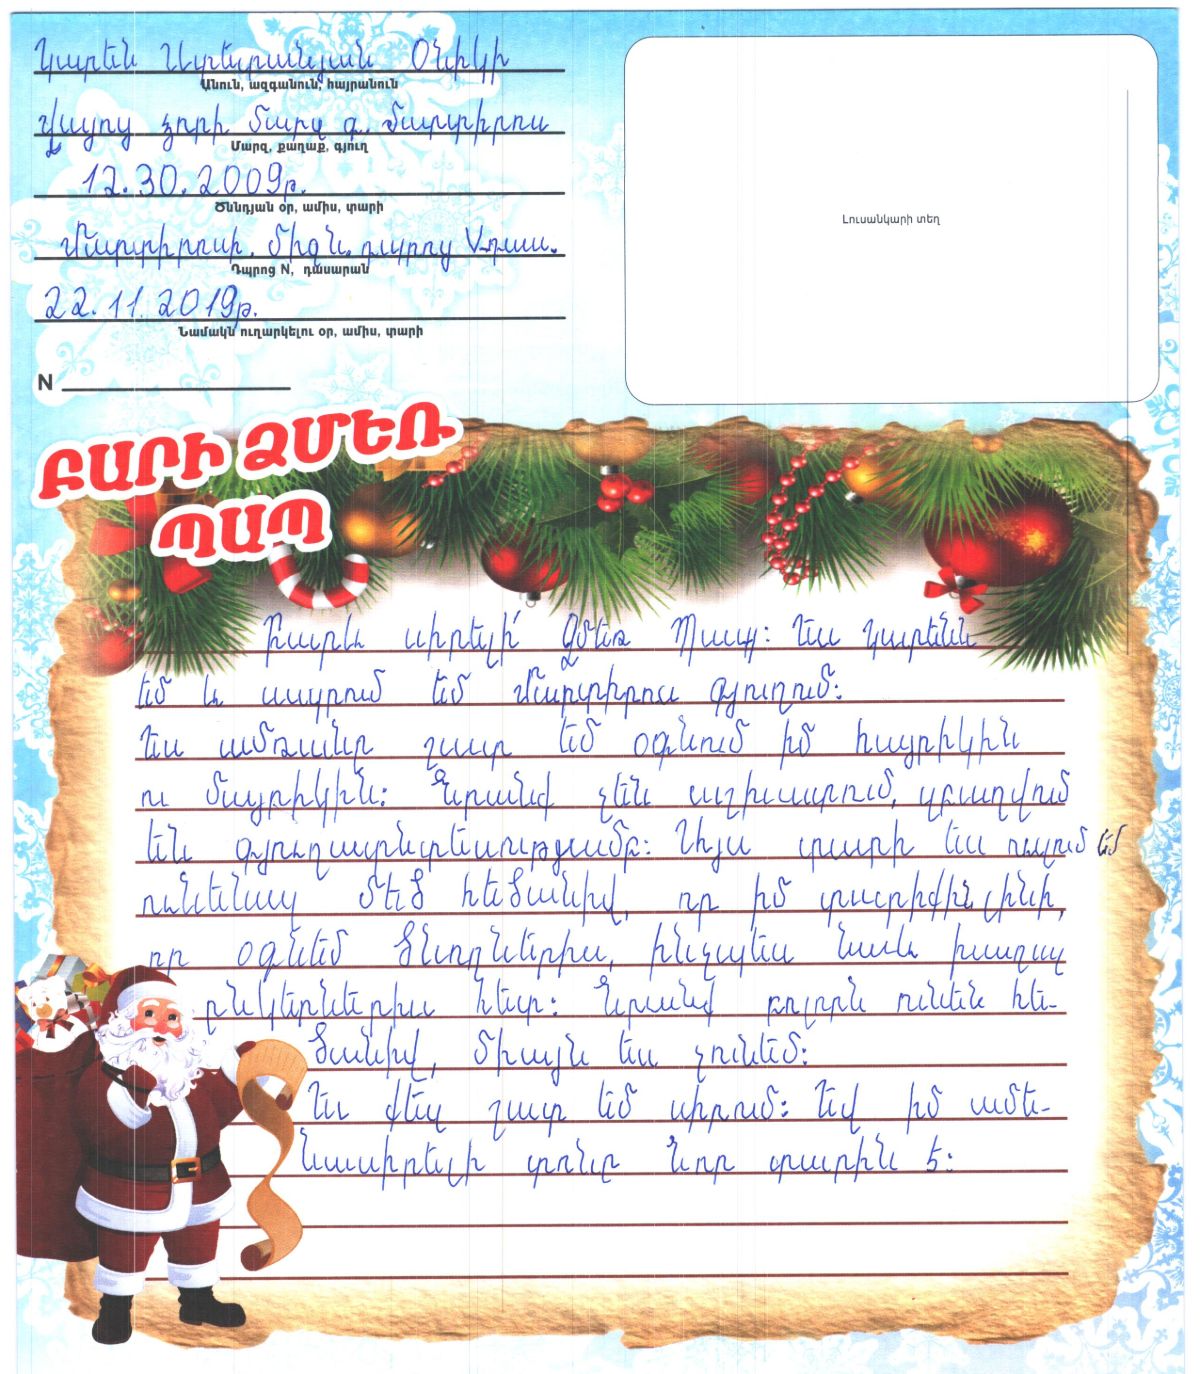 Կարեն Ստեփանյան Օնիկի
Անուն, ազգանուն, հայրանուն
Վայոց ձորի մարզ գ. Մարտիրոս
Մարզ, քաղաք, գյուղ
12.30.2009թ.
Ծննդյան օր, ամիս, տարի
Մարտիրոսի. միջն. դպրոց V-դաս.
Դպրոց N, դասարան
22.11.2019թ.
Նամակն ուղարկելու օր, ամիս, տարի
N
Լուսանկարի տեղ
ԲԱՐԻ ՁՄԵՌ
ՊԱՊ
Բարև սիրելի՛ Ձմեռ Պապ: Ես Կարենն
եմ և ապրում եմ Մարտիրոս գյուղում:
Ես ամռանը շատ եմ օգնում իմ հայրիկին
ու մայրիկին: Նրանք չեն աշխատում, զբաղվում
են գյուղատնտեսությամբ: Այս տարի ես ուզում եմ
ունենալ մեծ հեծանիվ, որ իմ տարիքին լինի,
որ օգնեմ ծնողներիս, ինչպես նաև խաղալ
ընկերներիս հետ: Նրանք բոլորն ունեն հե-
ծանիվ, միայն ես չունեմ:
Ես քեզ շատ եմ սիրում: Եվ իմ ամե-
նասիրելի տոնը Նոր տարին է: